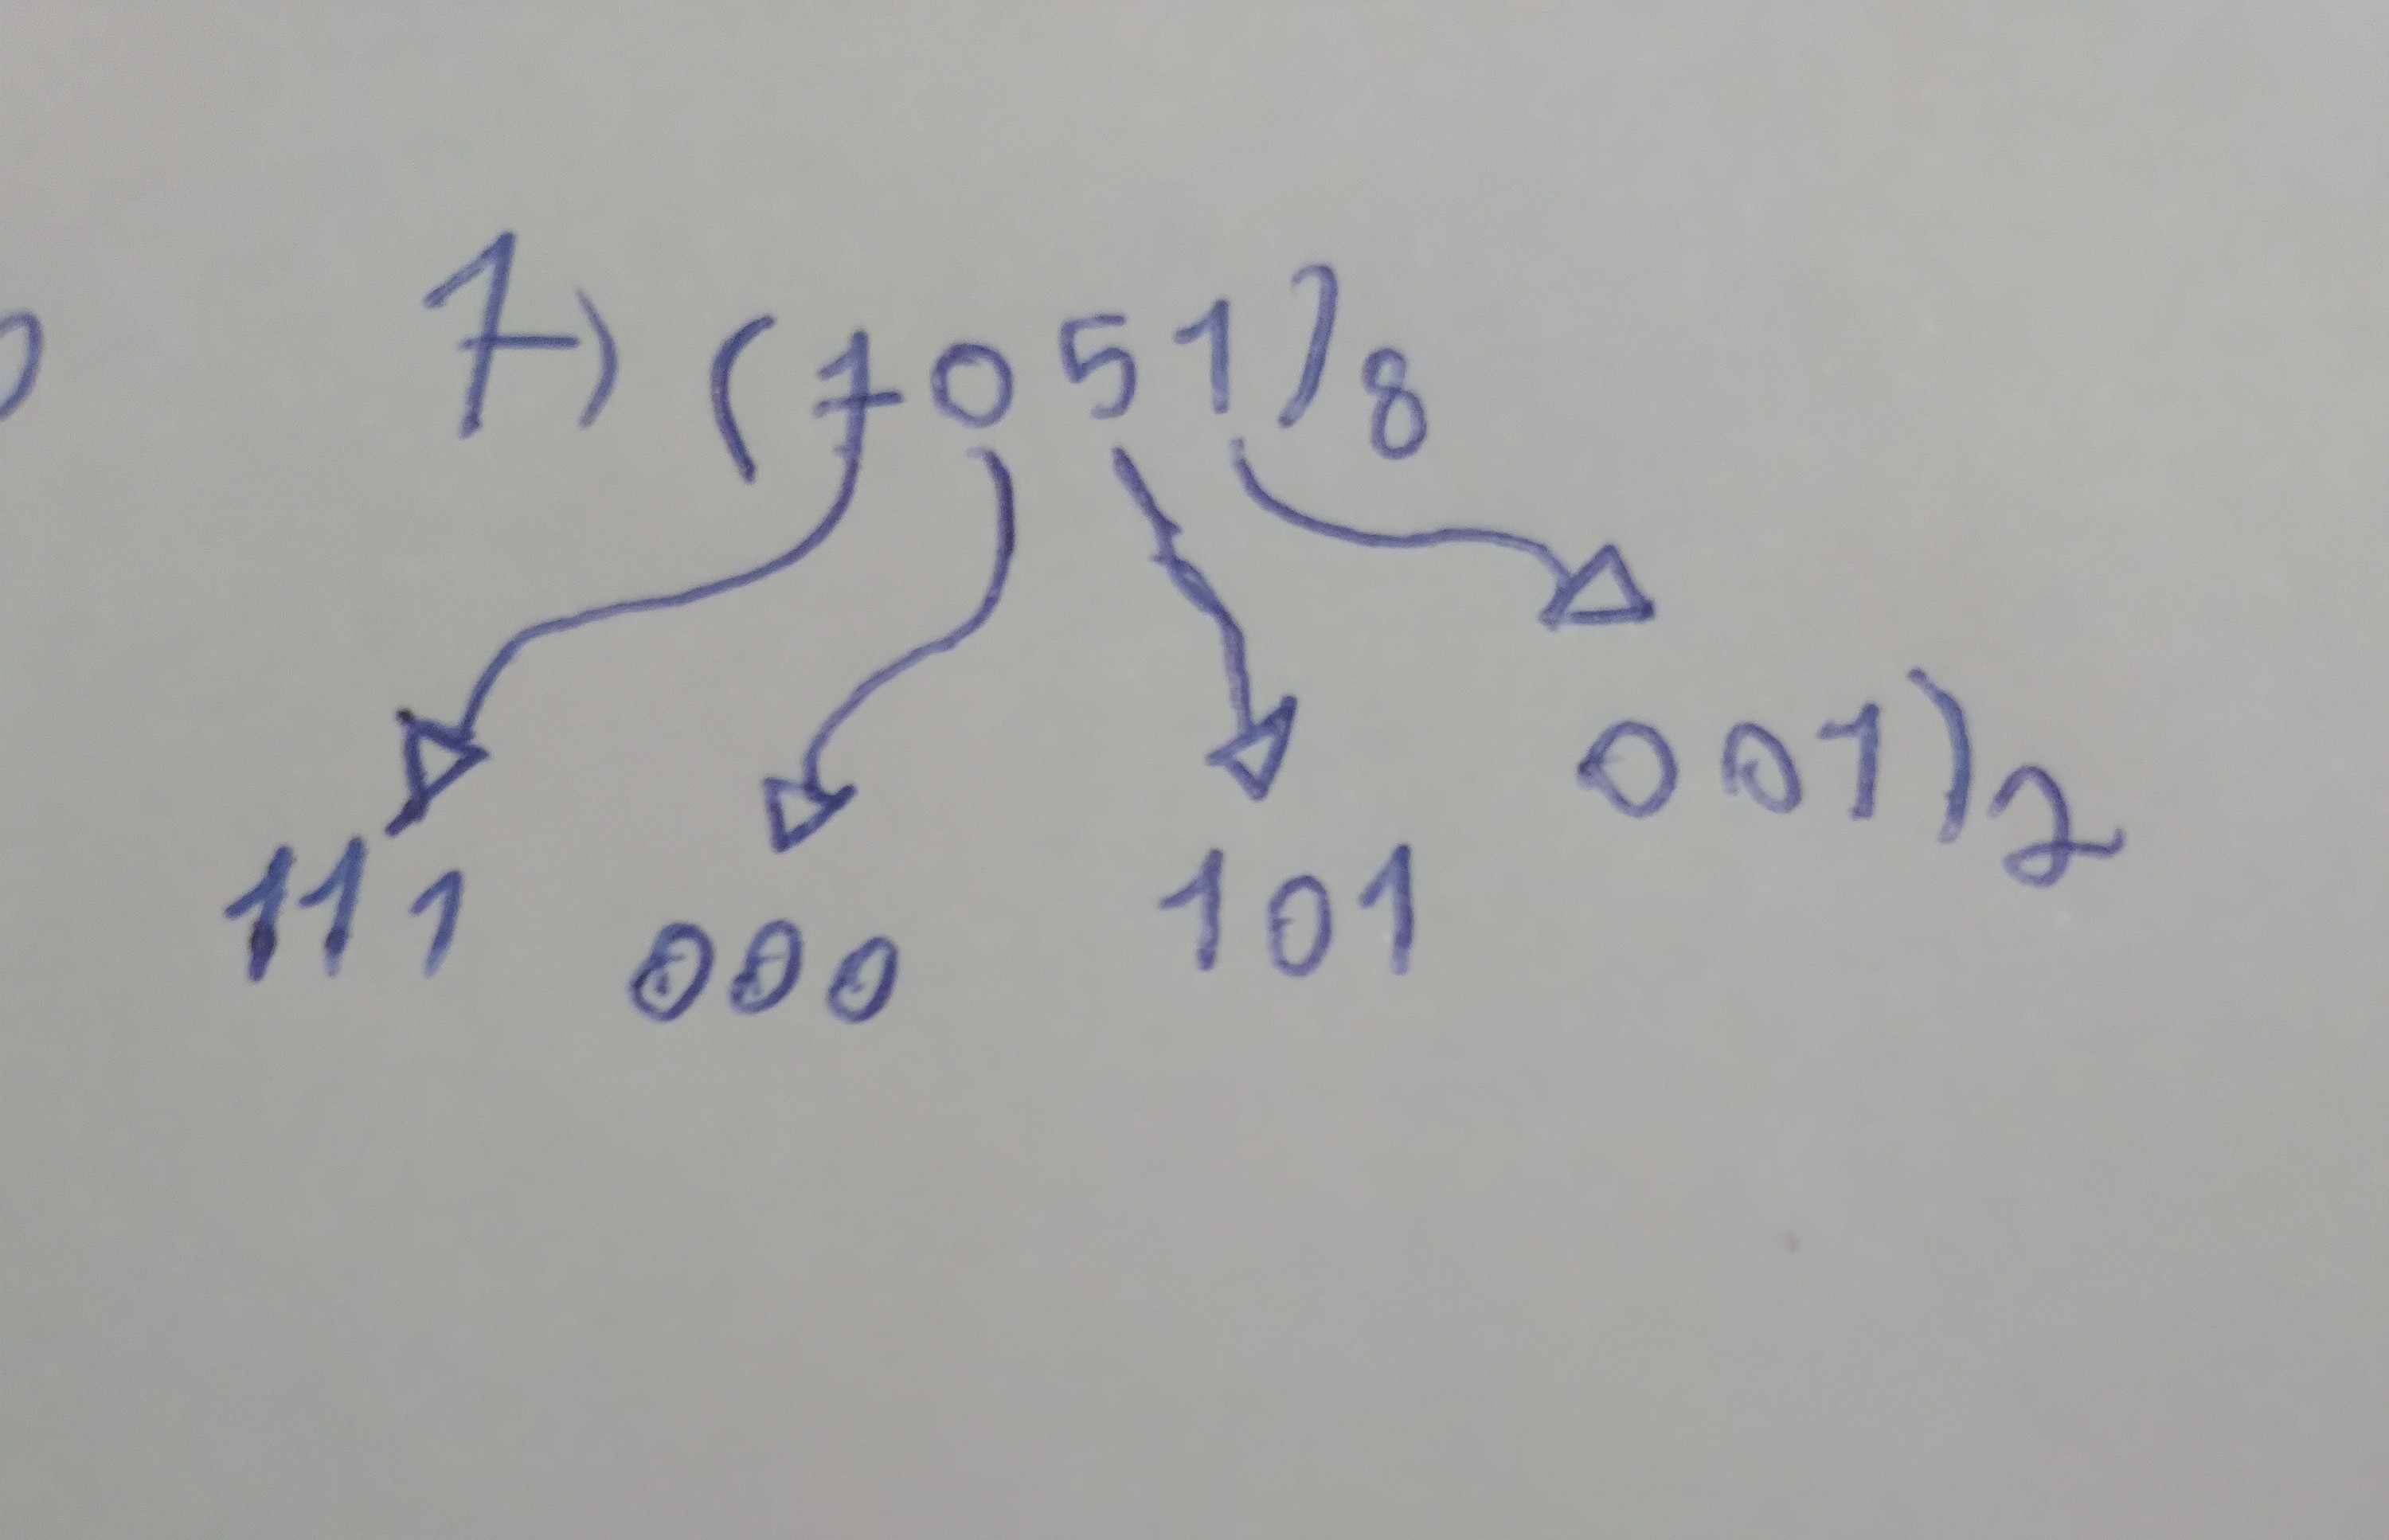 7) (7051)8
111 000 101 001)2